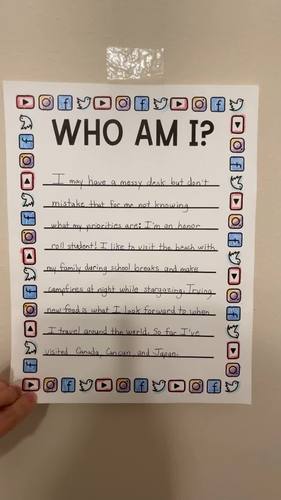 WHO AM I?
I may have a messy desk but don't
mistake that for me not knowing
what my priorities are; I'm an honor
roll student! I like to visit the beach with
my family during school breaks and make
campfires at night while stargazing. Trying
new food is what I look forward to when
I travel around the world. So far I've
visited Canada, Cancun, and Japan.